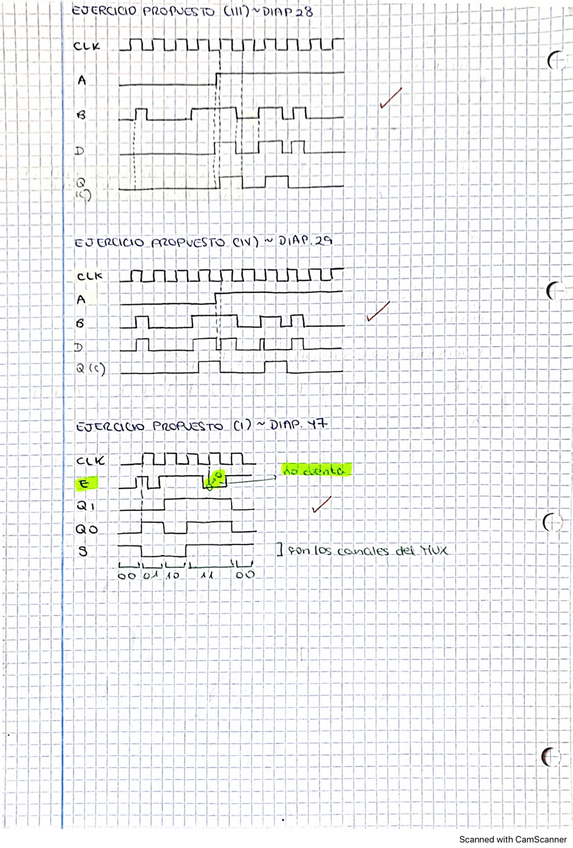 EJERCICIO PROPUESTO (III) ~ DIAP 28
CLK
A
B
D
Q
(C)
EJERCICIO PROPUESTO (IV) ~ DIAP. 29
CLK
A
B
D
Q (C)
EJERCICIO PROPUESTO (I) ~ DIAP. 47
CLK
no cuenta
E
Q1
Q0
S ] son los canales del MUX
00 01 10 11 00
Scanned with CamScanner